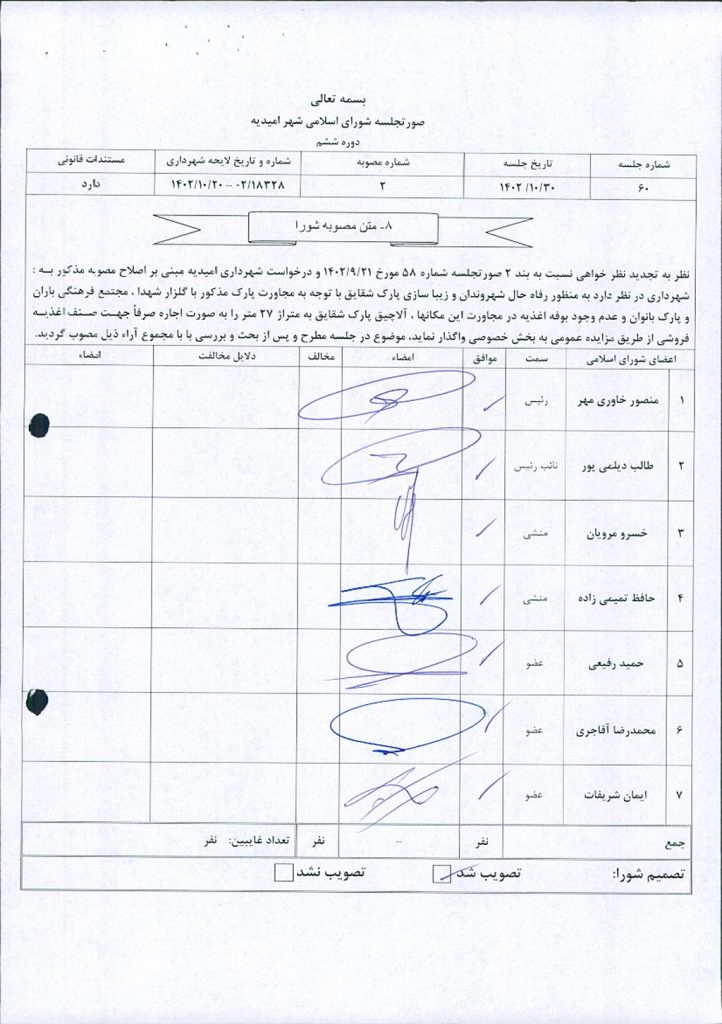 بسمه تعالی
صورتجلسه شورای اسلامی شهر امیدیه
دوره ششم
شماره جلسه تاریخ جلسه شماره مصوبه شماره و تاریخ لایحه شهرداری مستندات قانونی
۶۰ ۱۴۰۲/۱۰/۳۰ ۲ ۰۲/۱۸۳۲۸ – ۱۴۰۲/۱۰/۲۰ دارد
۸- متن مصوبه شورا
نظر به تجدید نظر خواهی نسبت به بند ۲ صورتجلسه شماره ۵۸ مورخ ۱۴۰۲/۹/۲۱ و درخواست شهرداری امیدیه مبنی بر اصلاح مصوبه مذکور به :
شهرداری در نظر دارد به منظور رفاه حال شهروندان و زیبا سازی پارک شقایق با توجه به مجاورت پارک مذکور با گلزار شهدا ، مجتمع فرهنگی باران
و پارک بانوان و عدم وجود بوفه اغذیه در مجاورت این مکانها ، آلاچیق پارک شقایق به متراژ ۲۷ متر را به صورت اجاره صرفاً جهت صنف اغذیه
فروشی از طریق مزایده عمومی به بخش خصوصی واگذار نماید، موضوع در جلسه مطرح و پس از بحث و بررسی با با مجموع آراء ذیل مصوب گردید.
اعضای شورای اسلامی سمت موافق امضاء مخالف دلایل مخالفت امضاء
۱ منصور خاوری مهر رئیس
۲ طالب دیلمی پور نائب رئیس
۳ خسرو مرویان منشی
۴ حافظ تمیمی زاده منشی
۵ حمید رفیعی عضو
۶ محمدرضا آقاجری عضو
۷ ایمان شریفات عضو
جمع نفر – نفر تعداد غایبین: نفر
تصمیم شورا: تصویب شد تصویب نشد